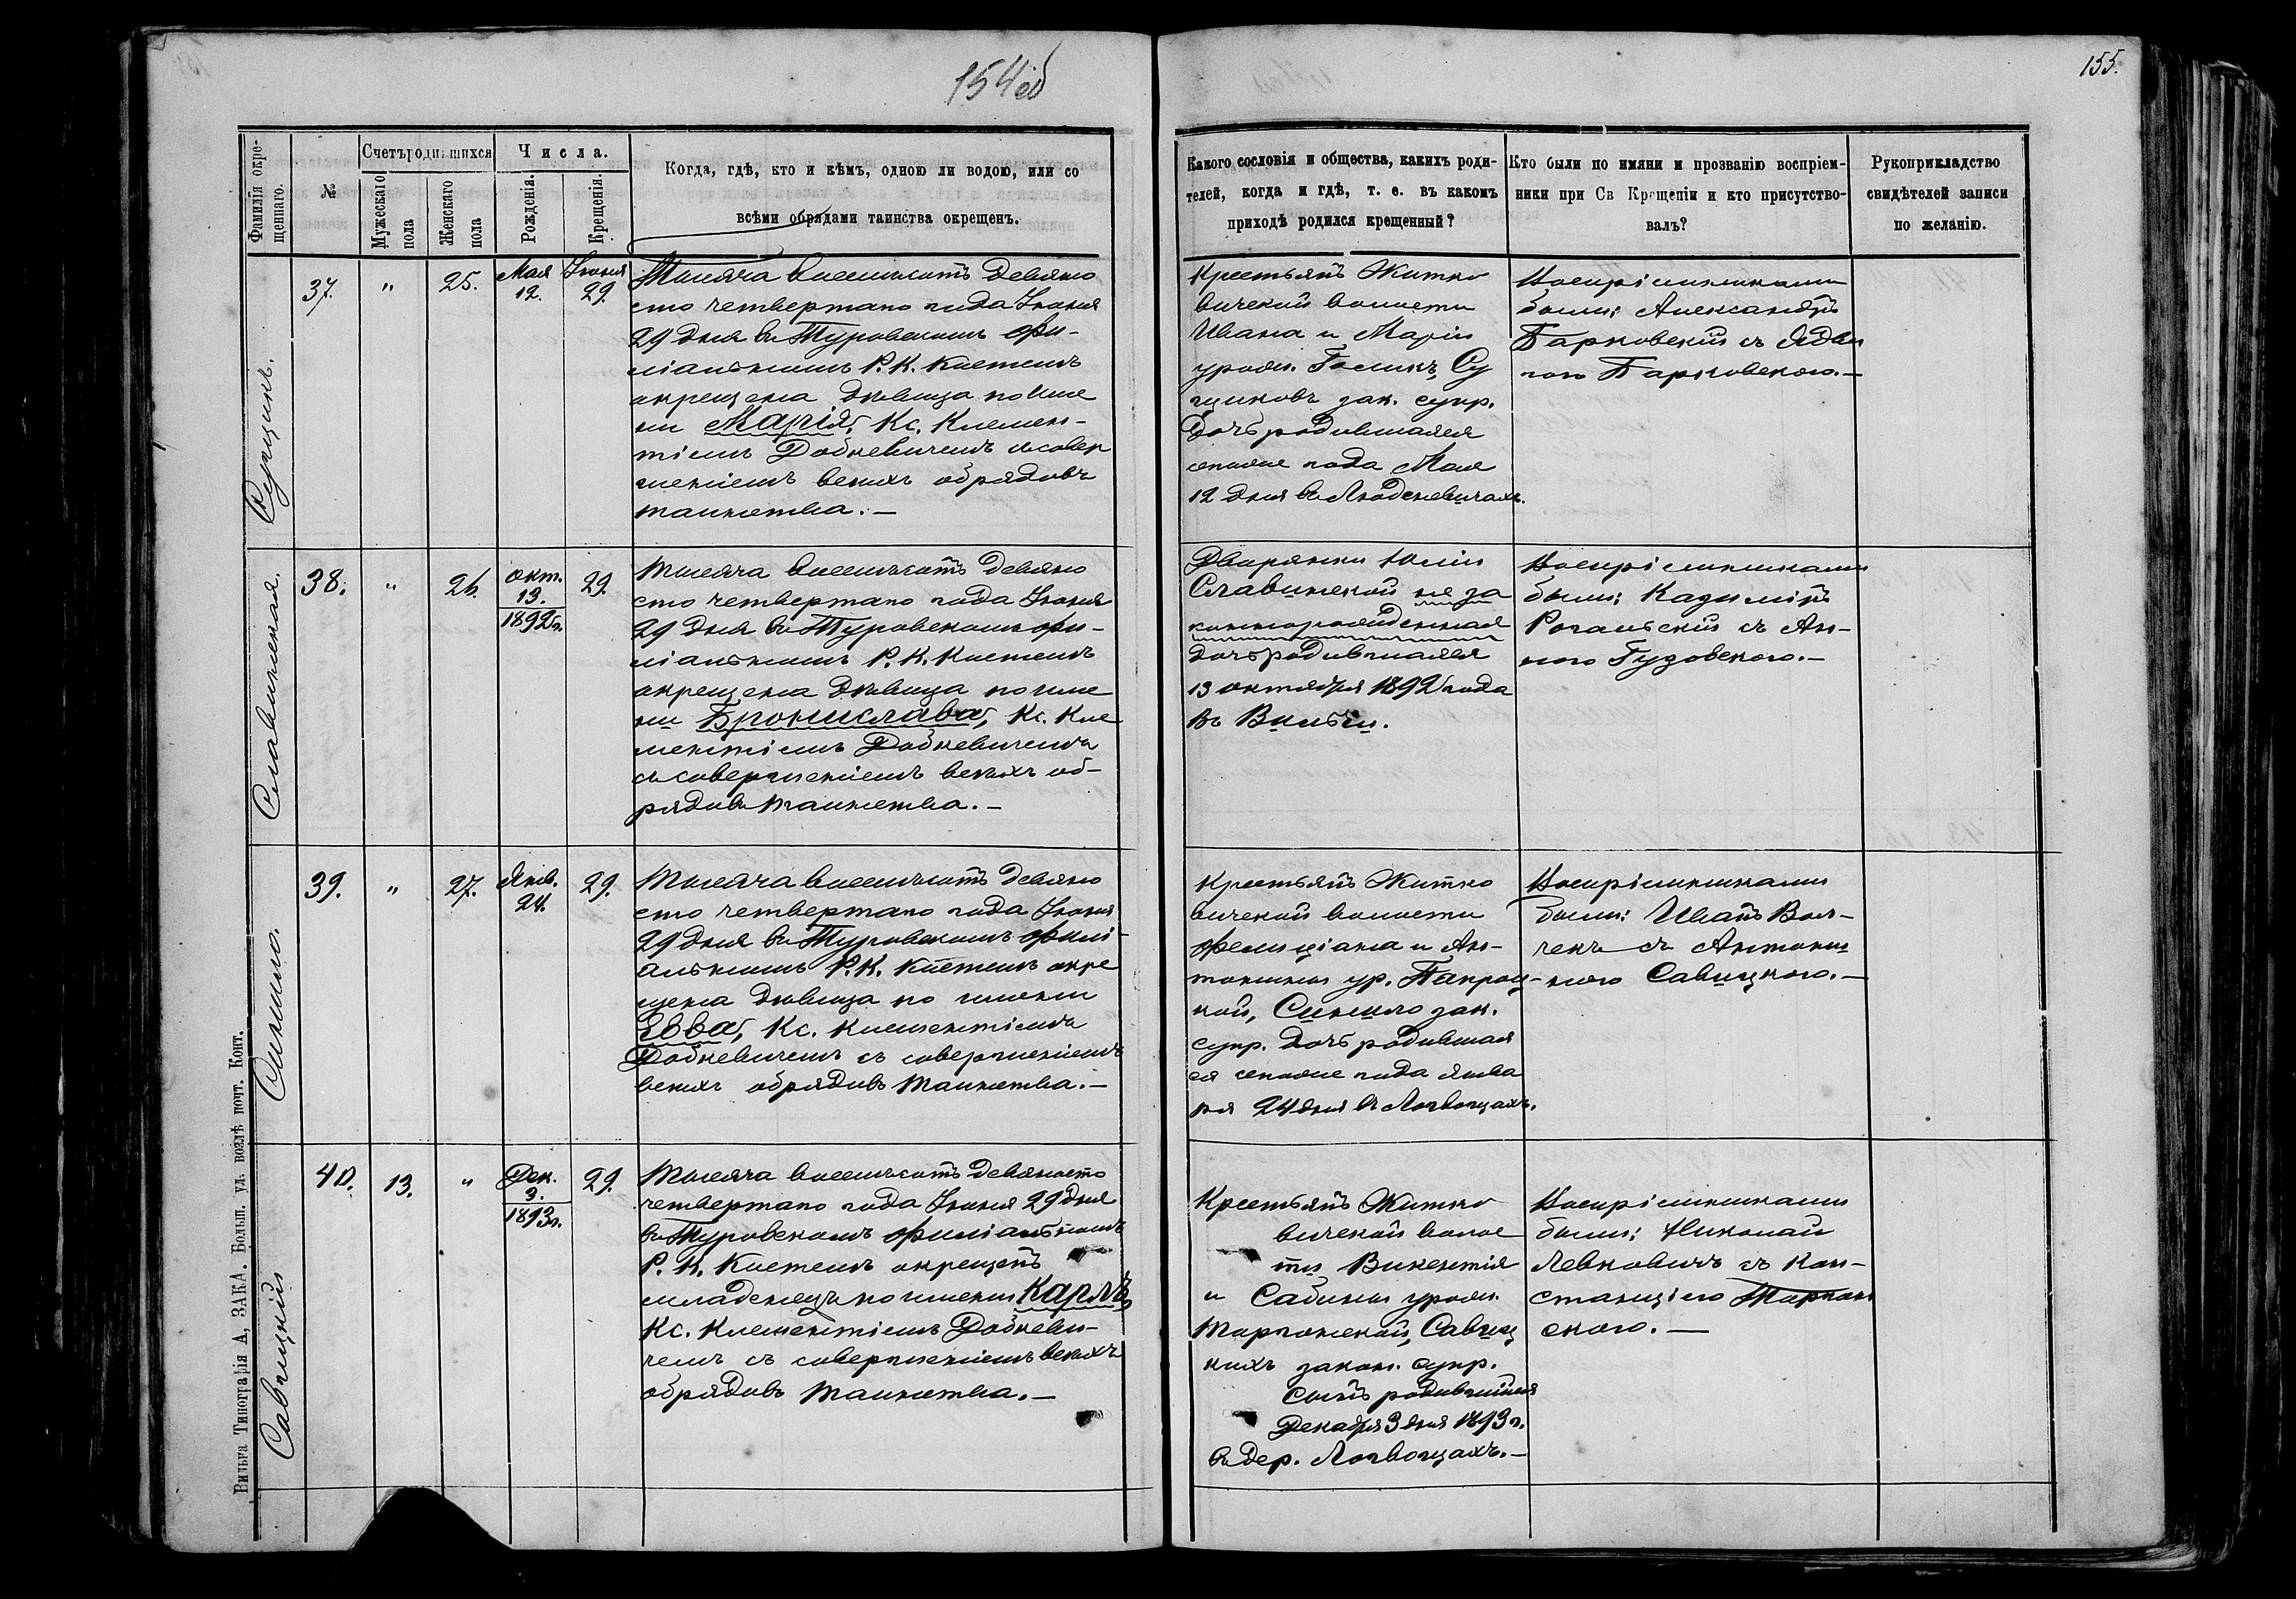 154 об
155.
Фамилія окре-
щеннаго.
№
Счетъ родившихся
Мужескаго
пола
Женскаго
пола
Числа.
Рожденія.
Крещенія.
Когда, гдѣ, кто и кѣмъ, одною ли водою, или со
всѣми обрядами таинства окрещенъ.
Какого сословія и общества, какихъ роди-
телей, когда и гдѣ, т. е. въ какомъ
приходѣ родился крещенный?
Кто были по имяни и прозванію воспріем-
ники при Св Крещеніи и кто присутство-
валъ?
Рукоприкладство
свидѣтелей записи
по желанію.
37.
"
25.
Мая
12.
Іюня
29.
Тысяча восемьсотъ девяно
сто четвертаго года Іюня
29 дня въ Туровскомъ фи-
ліальномъ Р. К. Костелѣ
окрещена дѣвица по име
ни Марія, Кс. Климен-
тіемъ Добкевичемъ съ совер
шеніемъ всѣхъ обрядовъ
таинства.—
Крестьянъ Житко
вичской волости
Ивана и Маріи
урожд.
зак. супр.
Дочь родившаяся
сегоже года Мая
12 дня въ Людкевичахъ.
Воспріемниками
были: Александръ
Барковскій съ Ядви
гою Барковскою.—
Славинская.
38.
"
26.
Окт.
13.
1892 г.
29.
Тысяча восемьсотъ девяно
сто четвертаго года Іюня
29 дня въ Туровскомъ фи-
ліальномъ Р. К. Костелѣ
окрещена дѣвица по име
ни Брониславa, Кс. Кле
ментіемъ Добкевичемъ
съ совершеніемъ всѣхъ об-
рядовъ таинства.—
Дворянки Юліи
Славинской неза
коннорожденная
дочь родившаяся
13 октября 1892 года
въ Вильнѣ.
Воспріемниками
были: Казиміръ
Рогальскій съ Ан-
ною Гудовскою.—
Синило.
39.
"
27.
Янв.
24.
29.
Тысяча восемьсотъ девяно
сто четвертаго года Іюня
29 дня въ Туровскомъ фили-
альномъ Р. К. Костелѣ окре
щена дѣвица по имени
Евва, Кс. Климентіемъ
Добкевичемъ съ совершеніемъ
всѣхъ обрядовъ таинства.—
Крестьянъ Житко
вичской волости
Фелиціана и Ан-
тонины ур. Папроц-
кой, Синило зак.
супр. дочь родившая
ся сегоже года янва
ря 24 дня въ Логвощахъ.
Воспріемниками
были: Иванъ Вол-
чекъ съ Антони
ною Савицкою.—
Савицкій
40.
13.
"
Дек.
3.
1893 г.
29.
Тысяча восемьсотъ девяносто
четвертаго года Іюня 29 дня
въ Туровскомъ филіальномъ
Р. К. Костелѣ окрещенъ
младенецъ по имени Карлъ,
Кс. Климентіемъ Добкеви-
чемъ съ совершеніемъ всѣхъ
обрядовъ таинства.—
Крестьянъ Житко
вичской волос
ти Викентія
и Сабины урожд.
Торгонской, Савиц
кихъ закон. супр.
сынъ родившійся
Декабря 3 дня 1893 г.
въ дер. Логвощахъ.—
Воспріемниками
были: Николай
Левковичъ съ Кон-
станціею Торгон
скою.—
Вильна Типографія А, ЗАКА. Больш. ул. возлѣ почт. Конт.